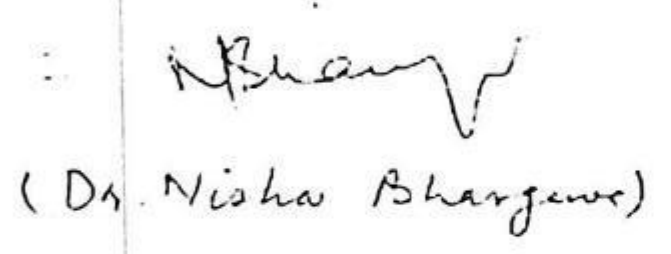 NBhargava
(Dr. Nisha Bhargava)